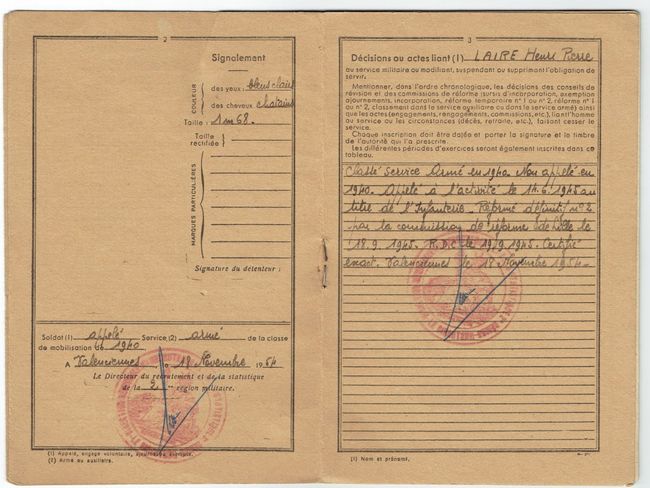 2
Signalement
COULEUR
des yeux : bleus clairs
des cheveux chatains
Taille : 1m68.
Taille rectifiée
MARQUES PARTICULIÈRES
Signature du détenteur :
Soldat (1) appelé Service (2) armé de la classe
de mobilisation de 1940
A Valenciennes le 18 Novembre 1954
Le Directeur du recrutement et de la statistique
de la 2 région militaire.
(1) Appelé, engagé volontaire, ajourné ou exempté.
(2) Armé ou auxiliaire.
3
Décisions ou actes liant (1) LAIRE Henri Pierre
au service militaire ou modifiant, suspendant ou supprimant l'obligation de
servir.
Mentionner, dans l'ordre chronologique, les décisions des conseils de
révision et des commissions de réforme (sursis d'incorporation, exemption
ajournements, incorporation, réforme temporaire n° 1 ou n° 2, réforme n° 1
ou n° 2, classement dans le service auxiliaire ou dans le service armé) ainsi
que les actes (engagements, rengagements, commissions, etc.), liant l'homme
au service ou les circonstances (décès, retraite, etc.), faisant cesser le
service.
Chaque inscription doit être datée et porter la signature et le timbre
de l'autorité qui l'a prescrite.
Les différentes périodes d'exercices seront également inscrites dans ce
tableau.
Classé Service Armé en 1940. Non appelé en
1940. Appelé à l'activité le 14.6.1945 au
titre de l'Infanterie. Réformé définitif n° 2
par la commission de réforme de Lille le
18.9.1945. R.D.C le 19/9.1945. Certifié
exact. Valenciennes le 18 Novembre 1954.
(1) Nom et prénoms.